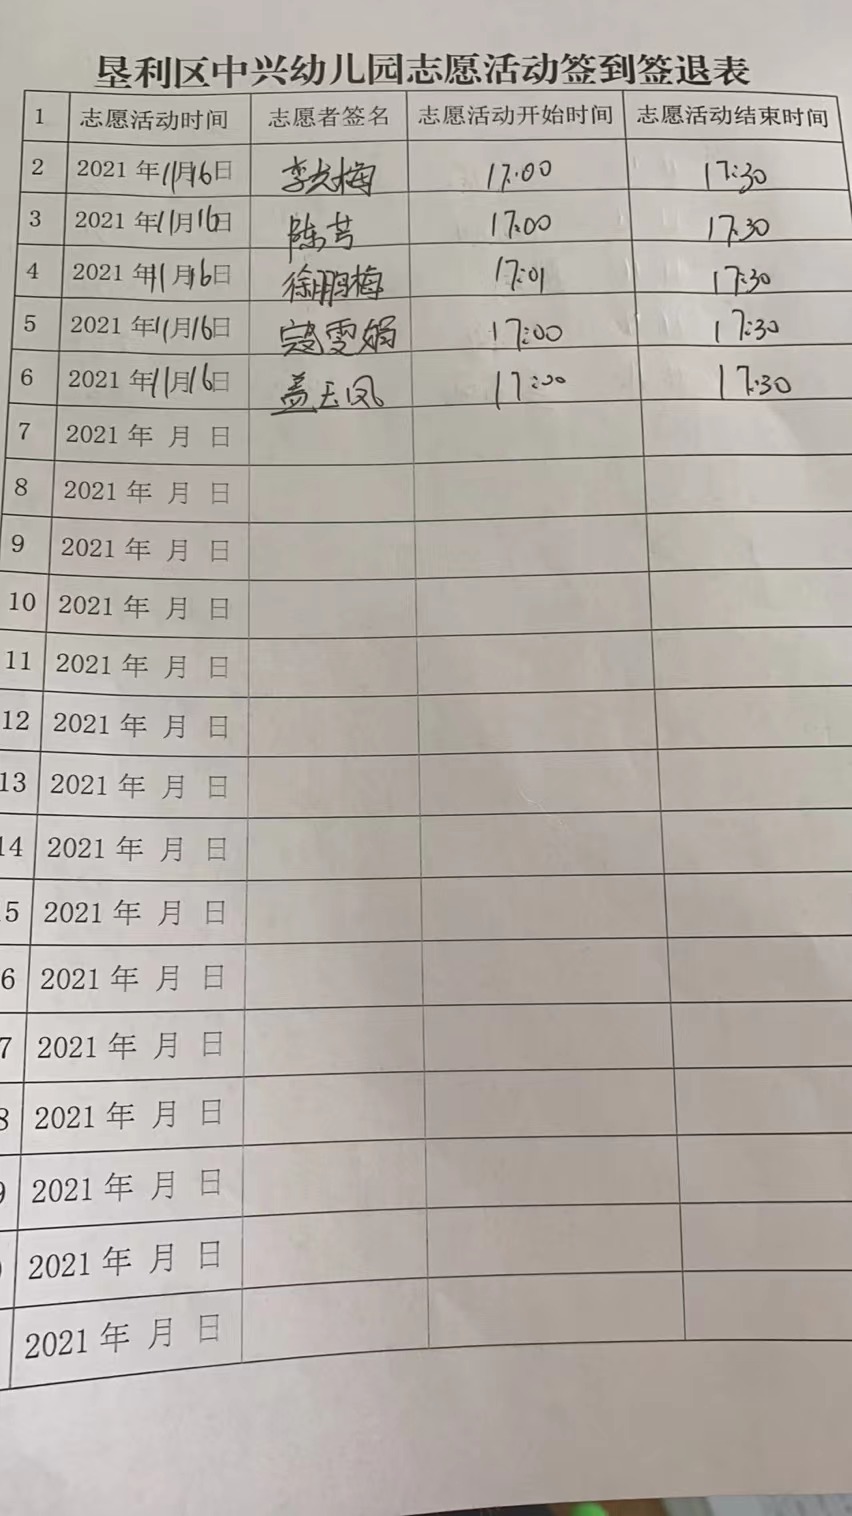 垦利区中兴幼儿园志愿活动签到签退表
1 志愿活动时间 志愿者签名 志愿活动开始时间 志愿活动结束时间
2 2021年11月16日 李光梅 17:00 17:30
3 2021年11月16日 陈芳 17:00 17:30
4 2021年11月16日 徐鹏梅 17:01 17:30
5 2021年11月16日 寇雯娟 17:00 17:30
6 2021年11月16日 盖玉凤 17:00 17:30
7 2021年 月 日
8 2021年 月 日
9 2021年 月 日
10 2021年 月 日
11 2021年 月 日
12 2021年 月 日
13 2021年 月 日
14 2021年 月 日
5 2021年 月 日
6 2021年 月 日
7 2021年 月 日
8 2021年 月 日
9 2021年 月 日
2021年 月 日
2021年 月 日